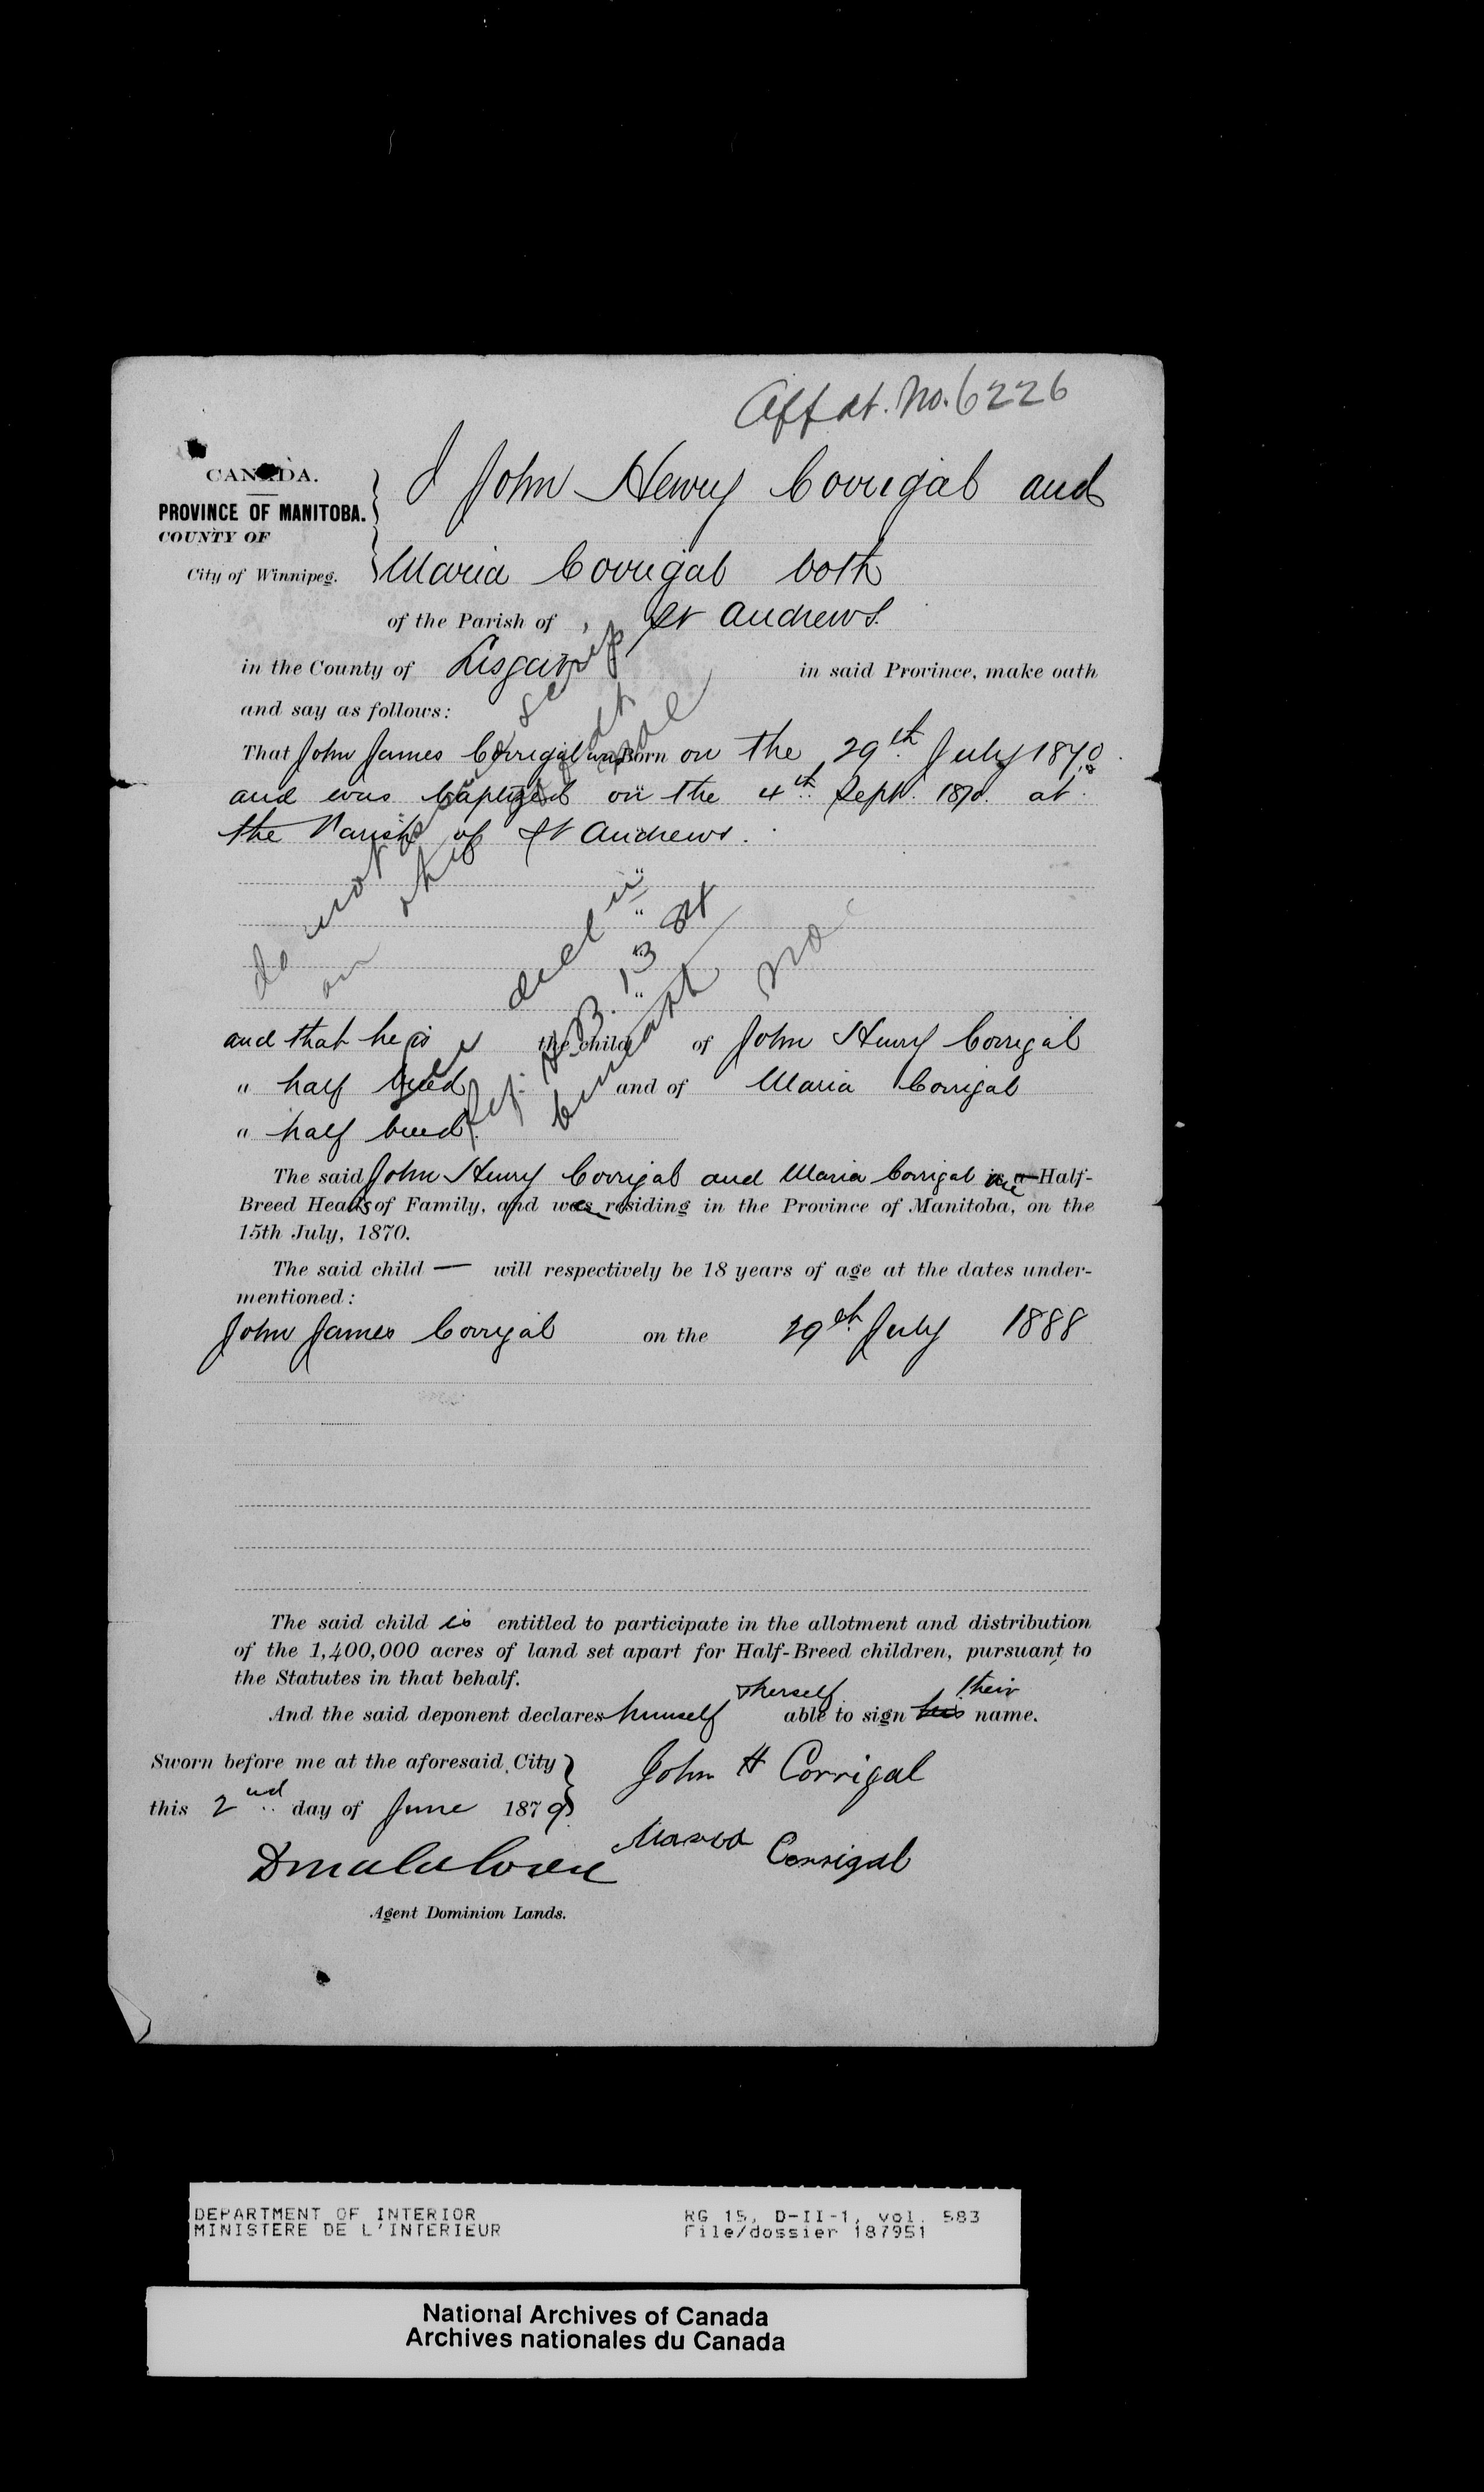 Affdt. No. 6226
CANADA.
PROVINCE OF MANITOBA.
COUNTY OF
City of Winnipeg.
I John Henry Corrigal and
Maria Corrigal both
of the Parish of St Andrews
in the County of Lisgar in said Province, make oath
and say as follows:
That John James Corrigal was Born on the 29th July 1870
and was baptized on the 4th Sept. 1870. at
the Parish of St Andrews.
do not scrip
on this
no
and that he is the child of John Henry Corrigal
" half breed and of Maria Corrigal
" half breed.
The said John Henry Corrigal and Maria Corrigal is a Half-
Breed Heads of Family, and was residing in the Province of Manitoba, on the
15th July, 1870.
The said child — will respectively be 18 years of age at the dates under-
mentioned:
John James Corrigal on the 29th July 1888
The said child is entitled to participate in the allotment and distribution
of the 1,400,000 acres of land set apart for Half-Breed children, pursuant to
the Statutes in that behalf.
& herself their
And the said deponent declares himself able to sign his name.
Sworn before me at the aforesaid City
this 2nd day of June 1879
John H Corrigal
Maria Corrigal
Agent Dominion Lands.
DEPARTMENT OF INTERIOR RG 15, D-II-1, vol. 583
MINISTERE DE L'INTERIEUR File/dossier 187951
National Archives of Canada
Archives nationales du Canada